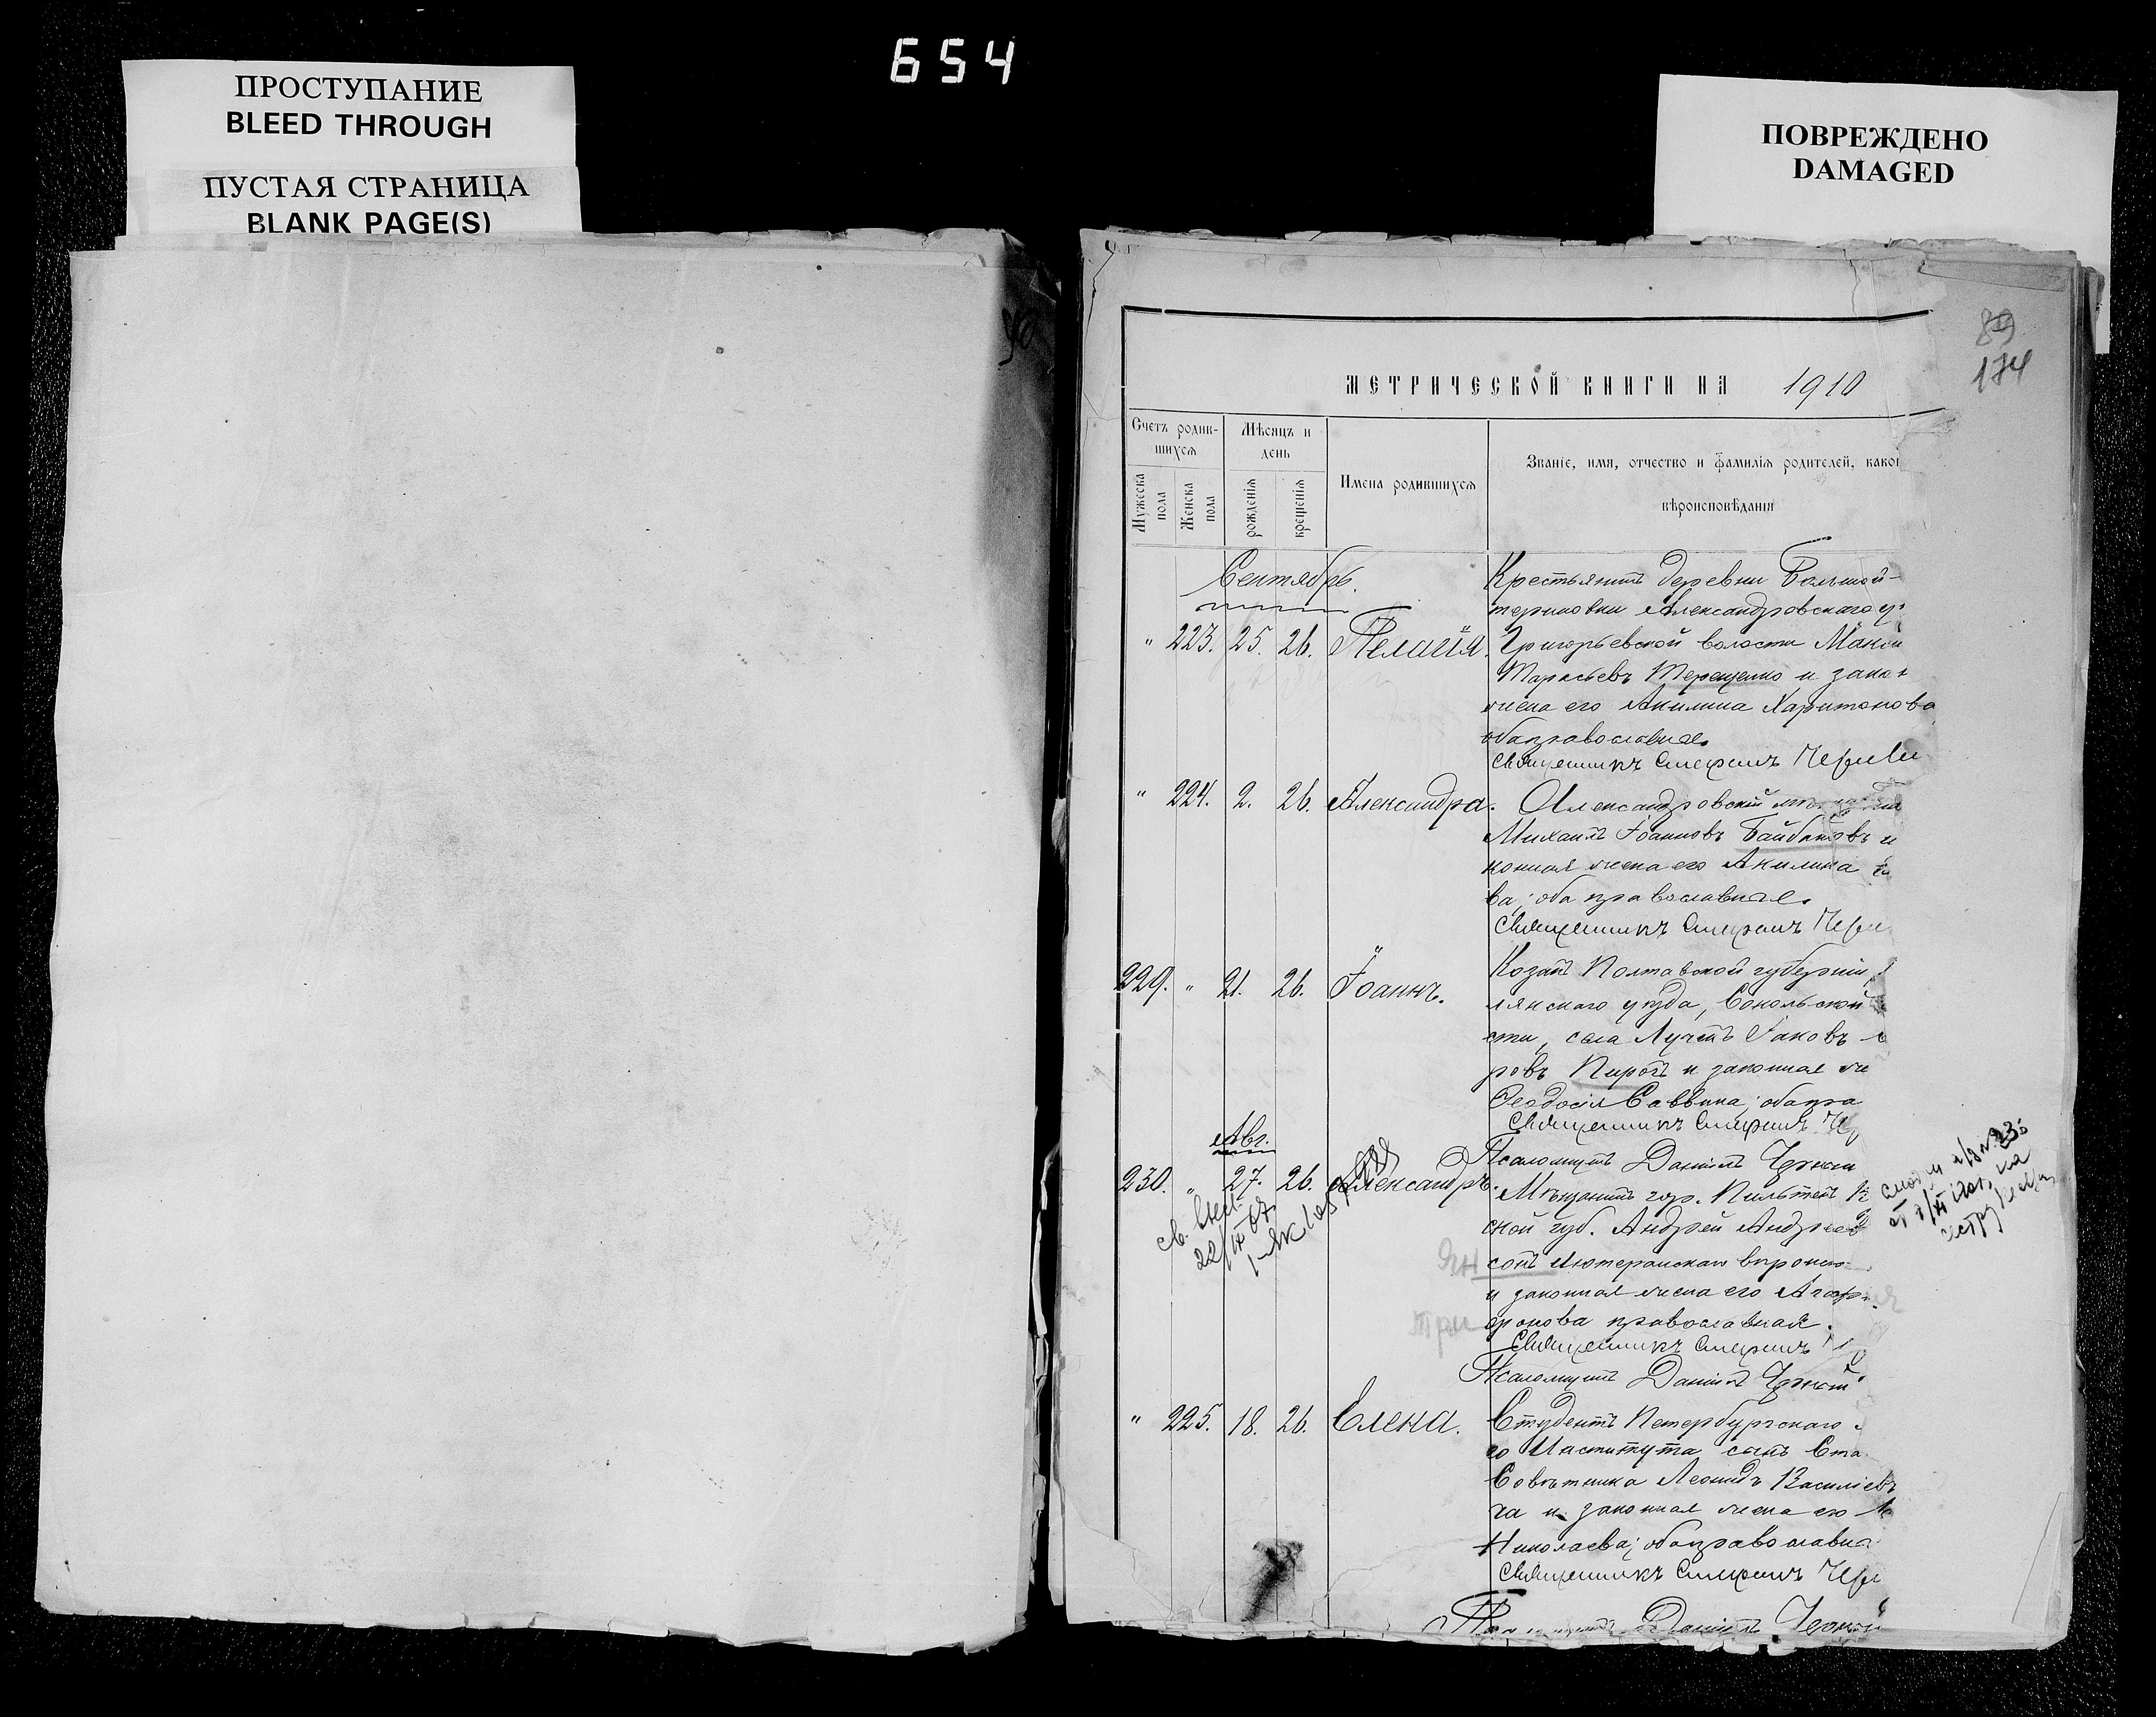 654
ПРОСТУПАНИЕ
BLEED THROUGH
ПУСТАЯ СТРАНИЦА
BLANK PAGE(S)
ПОВРЕЖДЕНО
DAMAGED
90
89
174
МЕТРИЧЕСКОЙ КНИГИ НА 1910
Счетъ родив-
шихся
Мужеска
пола
Женска
пола
Мѣсяцъ и
день
рожденія
крещенія
Имена родившихся
Званіе, имя, отчество и фамилія родителей, како
вѣроисповѣданія
Сентябрь.
" 223. 25. 26. Пелагія.
Крестьянинъ деревни Большой-
териновки Александровскаго у
Григорьевской волости Макси
Тарасьевъ Терещенко и закон
жена его Акилина Харитонова
оба православные.
Священникъ Стефанъ
" 224. 2. 26. Александра.
Александровскій
Михаилъ Іоанновъ Байбаковъ и
конная жена его Акилина
ва; оба православные.
Священникъ Стефанъ
229. " 21. 26. Іоаннъ.
Козакъ Полтавской губерніи,
лянскаго уѣзда, Сокольской
сти, села Лучекъ Іаковъ
ровъ Пирогъ и законная же
Ѳеодосія Саввина; оба пра
Священникъ Стефанъ
Псаломщикъ Даніилъ
Авг.
230. " 27. 26. Александръ.
Мѣщанинъ гор. Пильтенъ
ской губ. Андрей Андреев
Ян
сонъ лютеранскаго вѣроис
и законная жена его Агаф
три
фонова православная.
Священникъ Стефанъ
Псаломщикъ Даніилъ
" 225. 18. 26. Елена.
Студентъ Петербургскаго
го Института сынъ Ста
Совѣтника Леонидъ Василіевъ
ха и законная жена его
Николаева; оба православн
Священникъ Стефанъ
Даніилъ